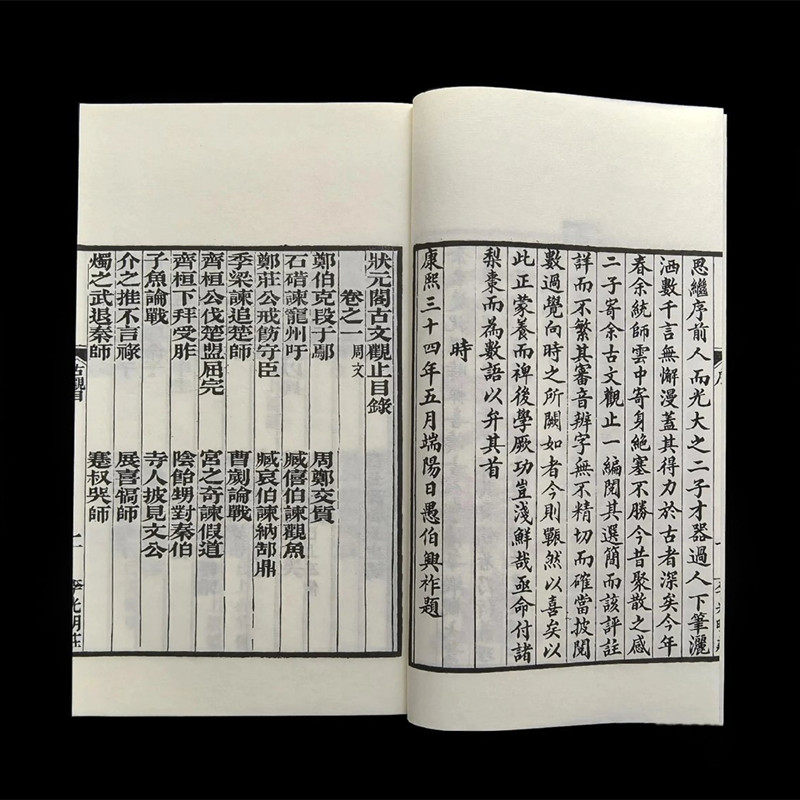 思繼序前人而光大之二子才器過人下筆灑
洒數千言無懈漫蓋其得力於古者深矣今年
春余統師雲中寄身絕塞不勝今昔聚散之感
二子寄余古文觀止一編閱其選簡而該評註
詳而不繁其審音辨字無不精切而確當披閱
數過覺向時之所闕如者今則囅然以喜矣以
此正蒙養而裨後學厥功豈淺鮮哉亟命付諸
梨棗而為數語以弁其首
時
康熙三十四年五月端陽日愚伯興祚題
狀元閣古文觀止目錄
卷之一 周文
鄭伯克段于鄢 周鄭交質
石碏諫寵州吁 臧僖伯諫觀魚
鄭莊公戒飭守臣 臧哀伯諫納郜鼎
季梁諫追楚師 曹劌論戰
齊桓公伐楚盟屈完 宮之奇諫假道
齊桓下拜受胙 陰飴甥對秦伯
子魚論戰 寺人披見文公
介之推不言祿 展喜犒師
燭之武退秦師 蹇叔哭師
古觀目 李光明莊